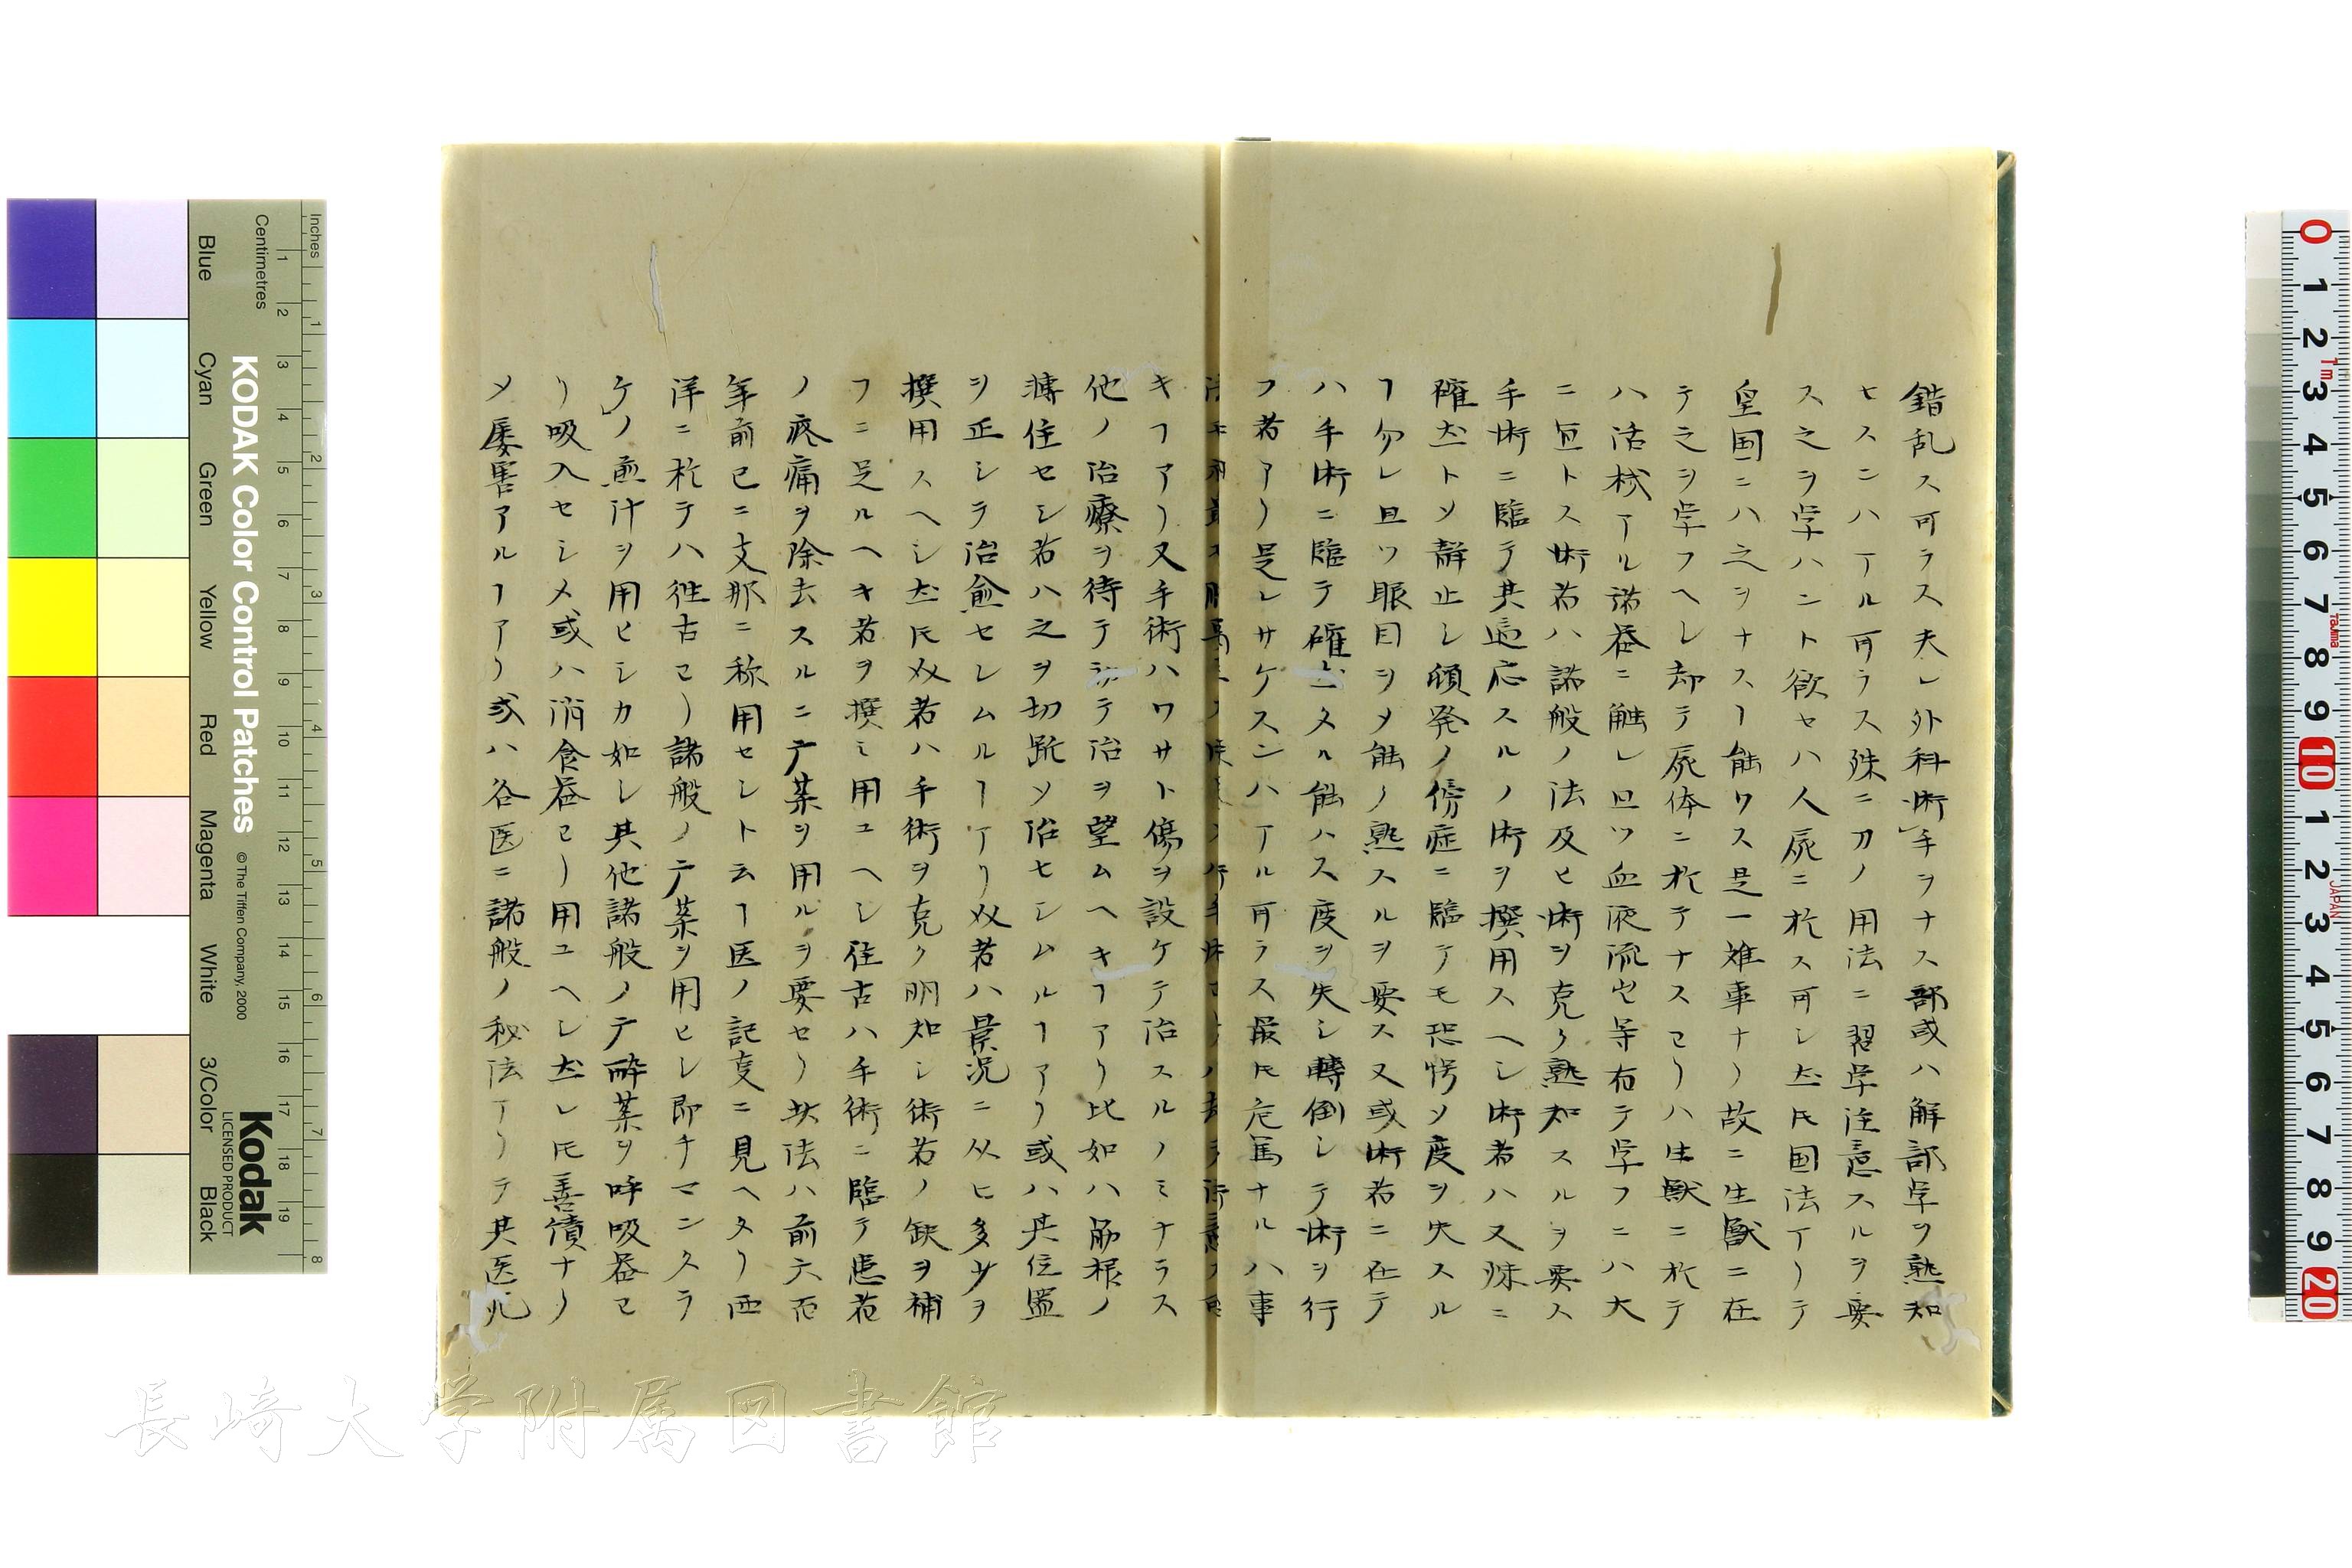 錯乱ス可ラス夫レ外科術手ヲナス部或ハ解部学ヲ熟知
セスンハアル可ラス殊ニ刀ノ用法ニ習学注意スルヲ要
ス之ヲ学ハント欲セハ人屍ニ於ス可シ𪜈国法アリテ
皇国ニハ之ヲナスヿ能ワス是一難事ナリ故ニ生獣ニ在
テ之ヲ学フヘレ却テ屍体ニ於テナスヨリハ生獣ニ於テ
ハ活棫アル諸器ニ触レ且ツ血液流出等有テ学フニハ大
ニ宜トス術者ハ諸般ノ法及ヒ術ヲ克ク熟知スルヲ要ス
手術ニ臨テ其適応スルノ術ヲ撰用スヘシ術者ハ又殊ニ
確乎トメ静止シ頓発ノ傍症ニ臨テモ恐愕メ度ヲ失スル
ヿ勿レ且ツ眼目ヲメ能ク熟スルヲ要ス又或術者ニ在テ
ハ手術ニ臨テ確乎タル能ハス度ヲ失シ轉倒シテ術ヲ行
フ者アリ是レサケスンハアル可ラス最𪜈危篤ナル
ハ事
キヿアリ又手術ハワサト傷ヲ設ケテ治スルノミナラス
他ノ治療ヲ待テ テ治ヲ望ムヘキヿアリ比如ハ筋根ノ
轉住セシ者ハ之ヲ切 メ治セシムルヿアリ或ハ其位置
ヲ正シテ治愈セレムルヿアリ 者ハ景況ニ从ヒ多少ヲ
撰用スヘシ 𪜈 者ハ手術ヲ克ク明知シ術者ノ缺ヲ補
フニ足ルヘキ者ヲ撰ミ用ユヘシ往古ハ手術ニ臨テ患者
ノ疼痛ヲ除去スルニ 薬ヲ用ルヲ要セリ 法ハ前六百
年前已ニ支那ニ称用セシト云ヿ医ノ記 ニ見ヘタリ西
洋ニ於テハ徃古ヨリ諸般ノ 薬ヲ用ヒレ即チマンタラ
ケノ煎汁ヲ用ヒシカ如レ其他諸般ノ 酔薬ヲ呼吸器ヨ
リ吸入セシメ或ハ消食器ヨリ用ユヘシ 𪜈善 ナリ
メ屡害アルヿアリ或ハ各医ニ諸般ノ秘法アリテ其医
長崎大学附属図書館
KODAK Color Control Patches
© The Tiffen Company, 2000
Kodak
LICENSED PRODUCT
Inches
Centimetres
Blue
Cyan
Green
Yellow
Red
Magenta
White
3/Color
Black